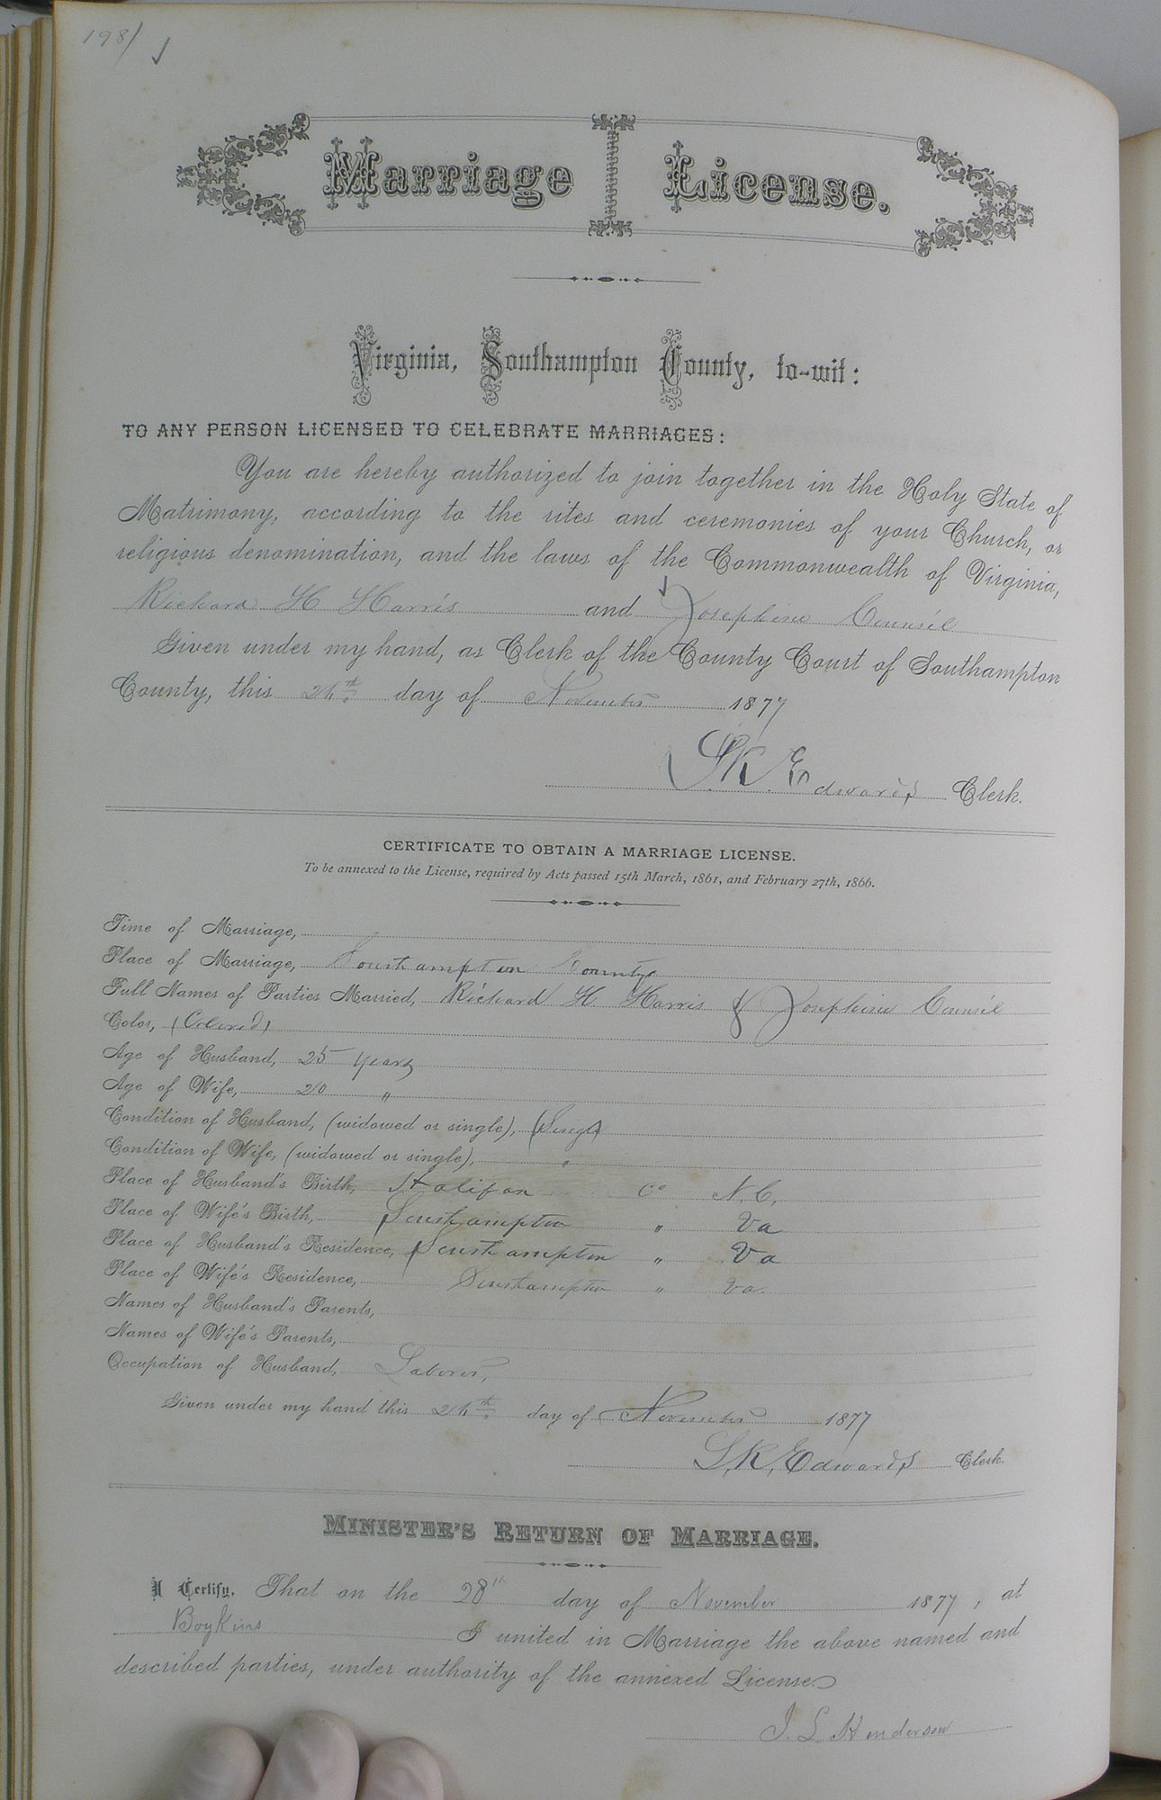 198/
Marriage License.
Virginia, Southampton County, to-wit:
TO ANY PERSON LICENSED TO CELEBRATE MARRIAGES:
You are hereby authorized to join together in the Holy State of
Matrimony, according to the rites and ceremonies of your Church, or
religious denomination, and the laws of the Commonwealth of Virginia,
Richard H Harris and Josephine Council
Given under my hand, as Clerk of the County Court of Southampton
County, this day of November 1877
L. K. Edwards Clerk.
CERTIFICATE TO OBTAIN A MARRIAGE LICENSE.
To be annexed to the License, required by Acts passed 15th March, 1861, and February 27th, 1866.
Time of Marriage,
Place of Marriage, Southampton County
Full Names of Parties Married, Richard H. Harris & Josephine Council
Color, (Colored)
Age of Husband, 25 years
Age of Wife, 20 "
Condition of Husband, (widowed or single), Single
Condition of Wife, (widowed or single), "
Place of Husband's Birth, Halifax Co N.C,
Place of Wife's Birth, Southampton " Va
Place of Husband's Residence, Southampton " Va
Place of Wife's Residence, Southampton " Va.
Names of Husband's Parents,
Names of Wife's Parents,
Occupation of Husband, Laborer,
Given under my hand this day of November 1877
L. K. Edwards Clerk.
MINISTER'S RETURN OF MARRIAGE.
I Certify, That on the 28th day of November 1877, at
Boykins I united in Marriage the above named and
described parties, under authority of the annexed License
J. L. Henderson